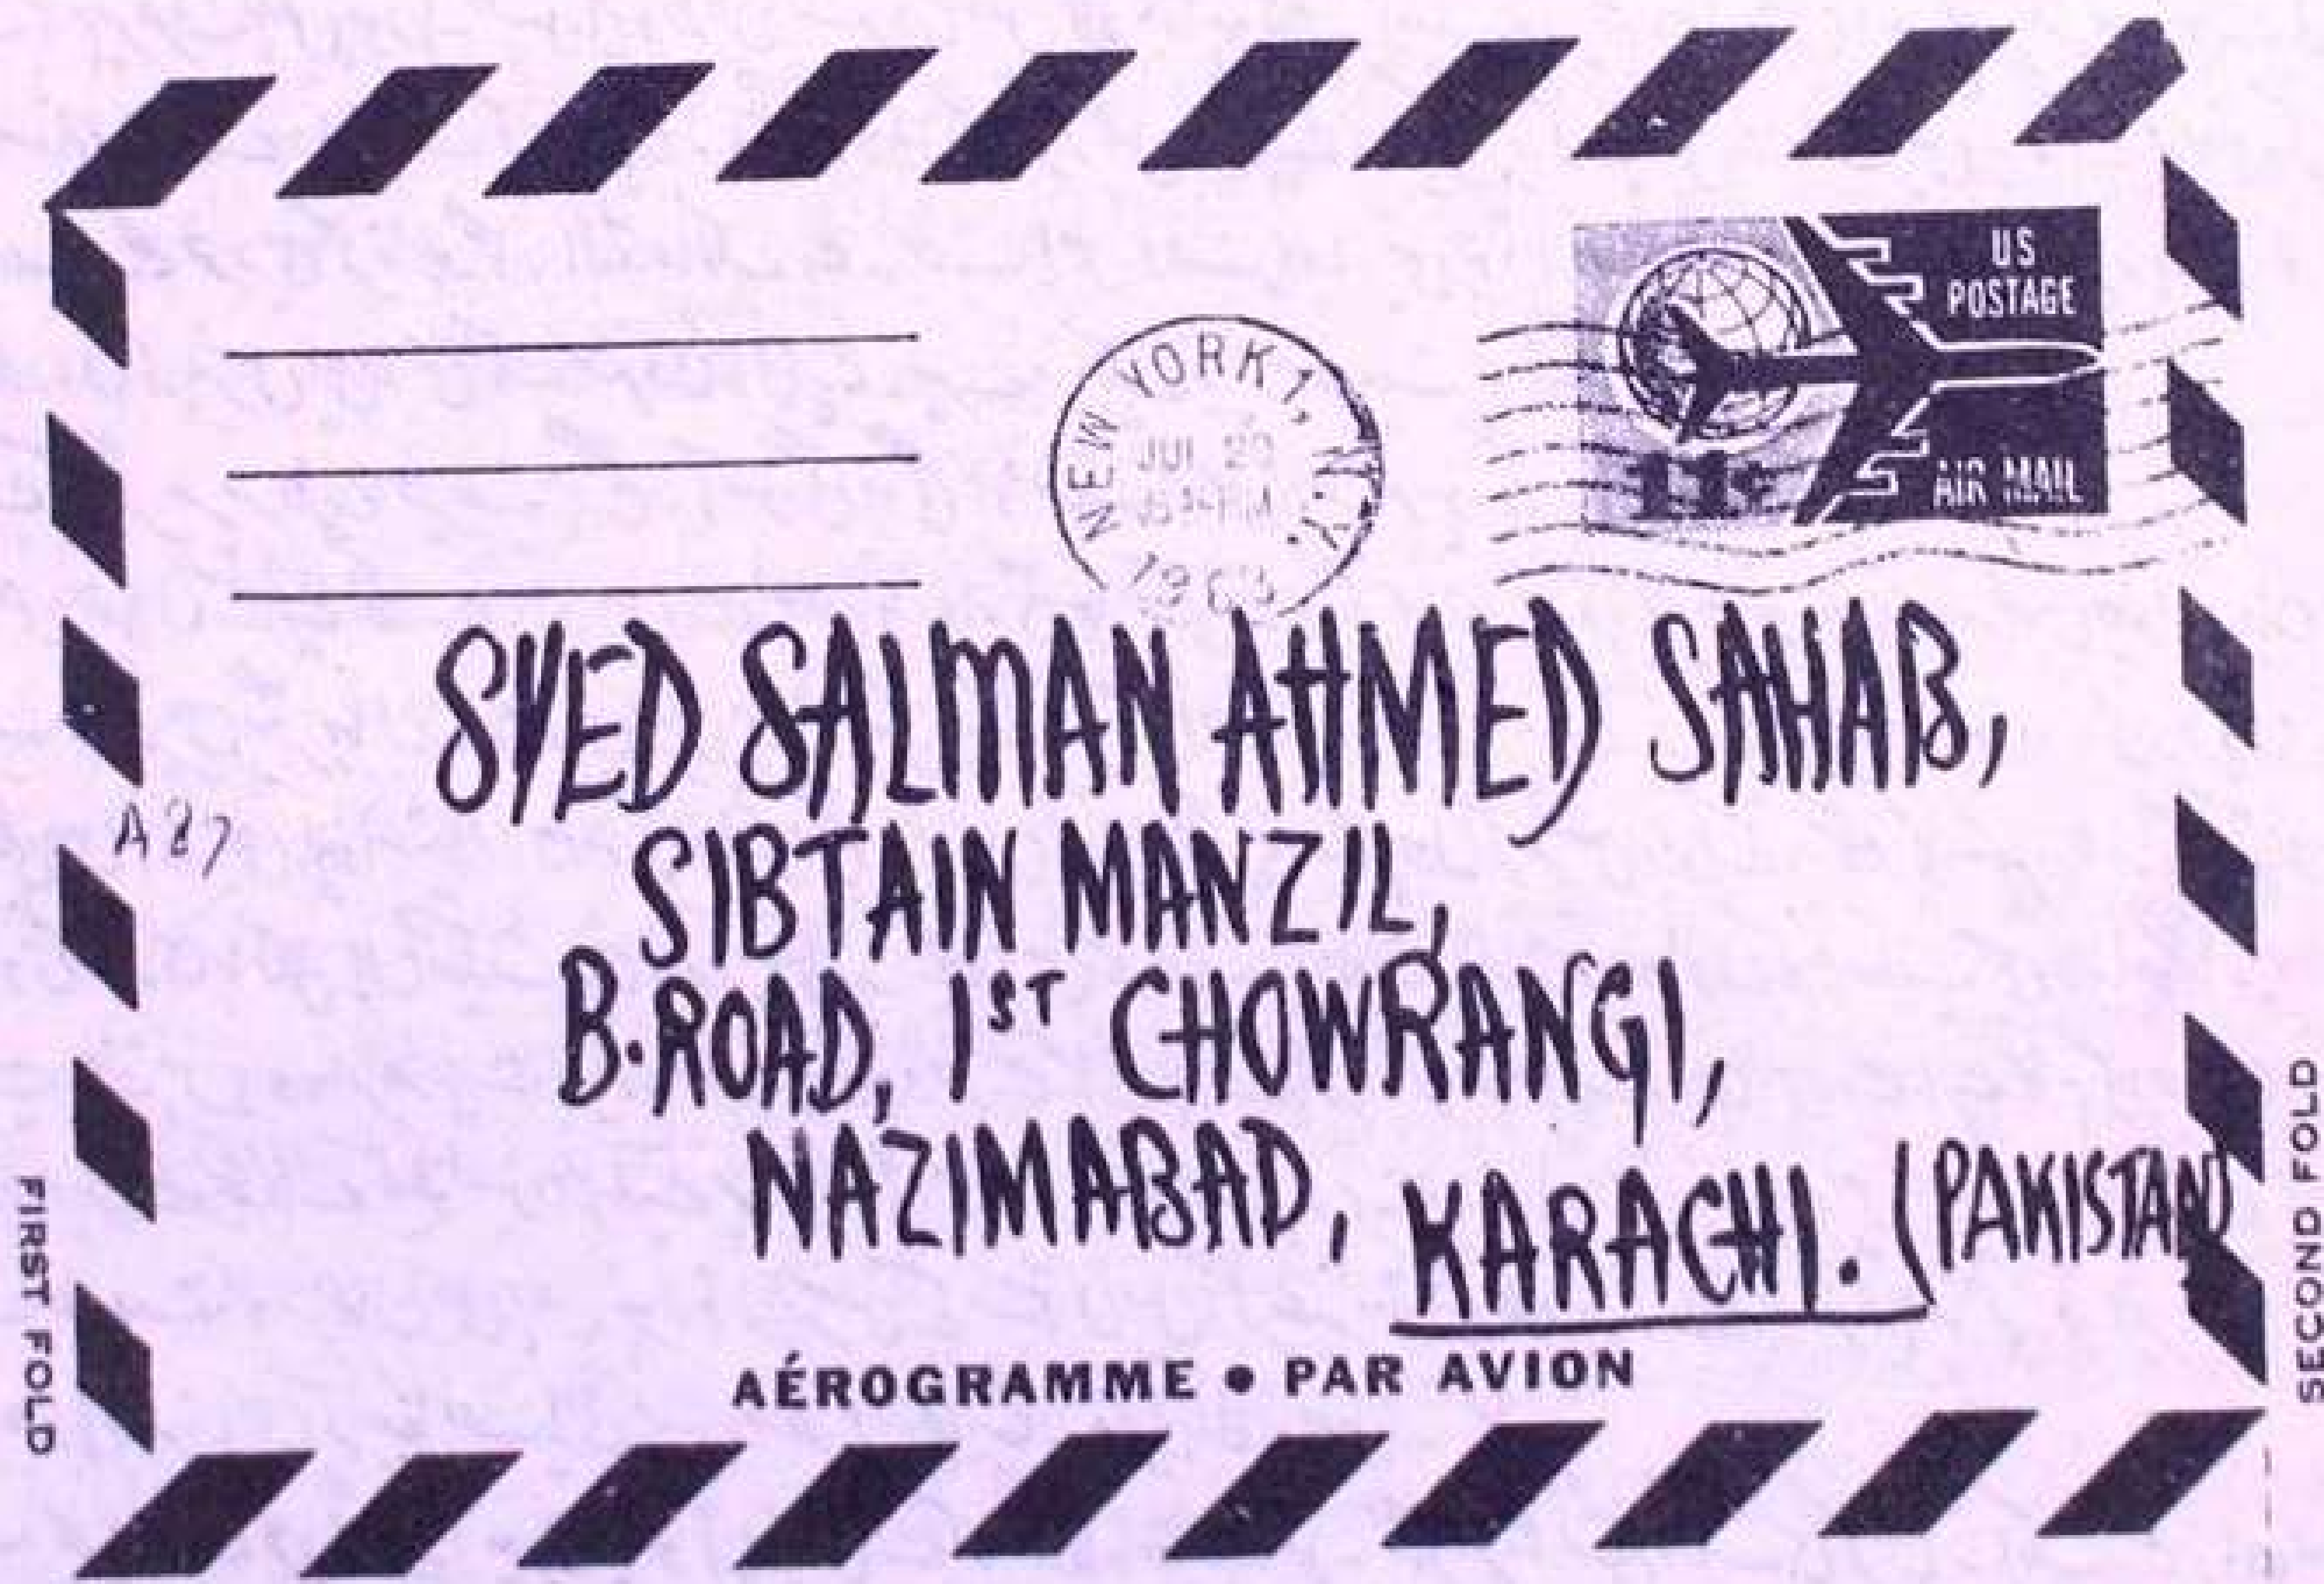 US
POSTAGE
AIR MAIL
NEW YORK 1, N.Y.
JUL
SYED SALMAN AHMED SAHAB,
A 87
SIBTAIN MANZIL,
B.ROAD, 1ST CHOWRANGI,
NAZIMABAD, KARACHI. (PAKISTAN)
AÉROGRAMME • PAR AVION
FIRST FOLD
SECOND FOLD